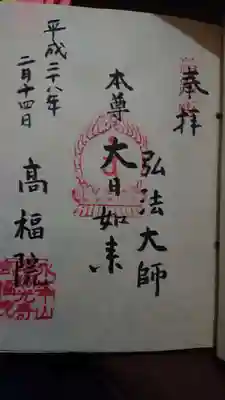 奉拝
弘法大師
本尊 大日如来
平成二十八年
二月十四日
高福院